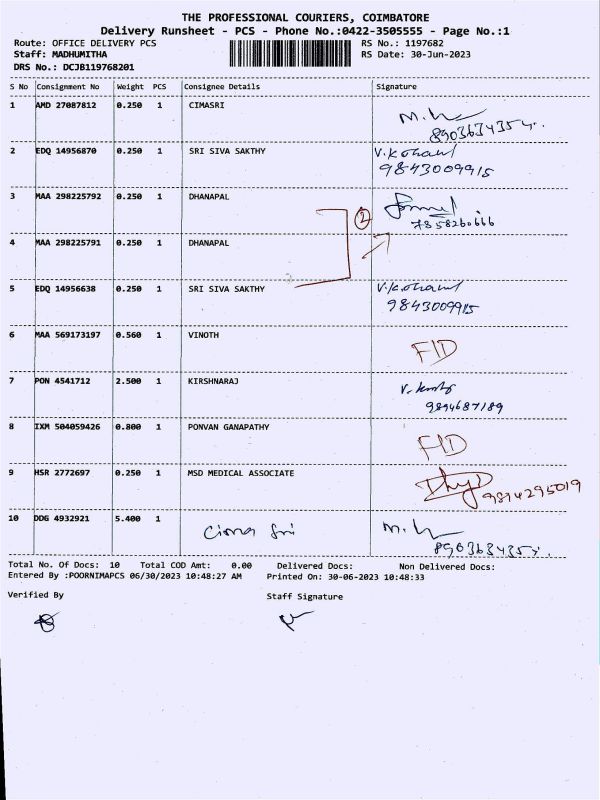 THE PROFESSIONAL COURIERS, COIMBATORE
Delivery Runsheet - PCS - Phone No.:0422-3505555 - Page No.:1
Route: OFFICE DELIVERY PCS RS No.: 1197682
Staff: MADHUMITHA RS Date: 30-Jun-2023
DRS No.: DCJB119768201
S No Consignment No Weight PCS Consignee Details Signature
1 AMD 27087812 0.250 1 CIMASRI
8903634354
2 EDQ 14956870 0.250 1 SRI SIVA SAKTHY
9843009915
3 MAA 298225792 0.250 1 DHANAPAL
2 7358260666
4 MAA 298225791 0.250 1 DHANAPAL
5 EDQ 14956638 0.250 1 SRI SIVA SAKTHY
9843009915
6 MAA 569173197 0.560 1 VINOTH
FID
7 PON 4541712 2.500 1 KIRSHNARAJ
9894687189
8 IXM 504059426 0.800 1 PONVAN GANAPATHY
FID
9 HSR 2772697 0.250 1 MSD MEDICAL ASSOCIATE
9894295019
10 DDG 4932921 5.400 1 Cima Sri
Total No. Of Docs: 10 Total COD Amt: 0.00 Delivered Docs: Non Delivered Docs:
Entered By :POORNIMAPCS 06/30/2023 10:48:27 AM Printed On: 30-06-2023 10:48:33
Verified By Staff Signature